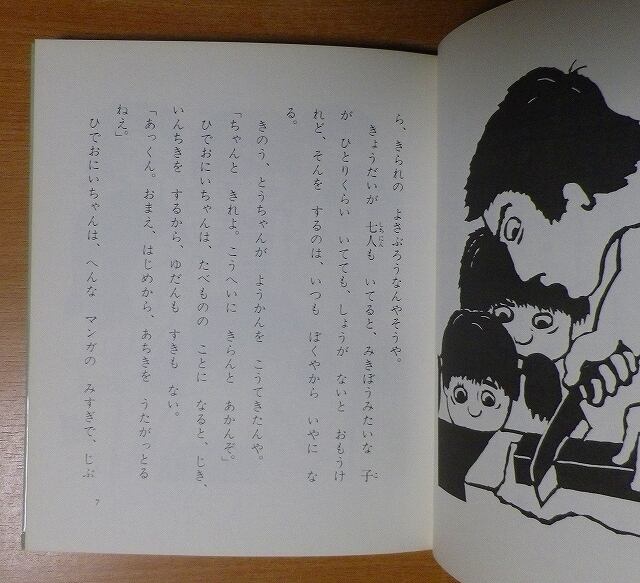 ら、きられの よさぶろうなんやそうや。
きょうだいが 七人も いてると、みきぼうみたいな 子
しちにん
こ
が ひとりくらい いてても、しょうが ないと おもうけ
れど、そんを するのは、いつも ぼくやから いやに な
る。
きのう、とうちゃんが ようかんを こうてきたんや。
「ちゃんと きれよ。こうへいに きらんと あかんぞ。」
ひでおにいちゃんは、たべものの ことに なると、じき、
いんちきを するから、ゆだんも すきも ない。
「あっくん。おまえ、はじめから、あちきを うたがっとる
ねえ。」
ひでおにいちゃんは、へんな マンガの みすぎで、じぶ
7